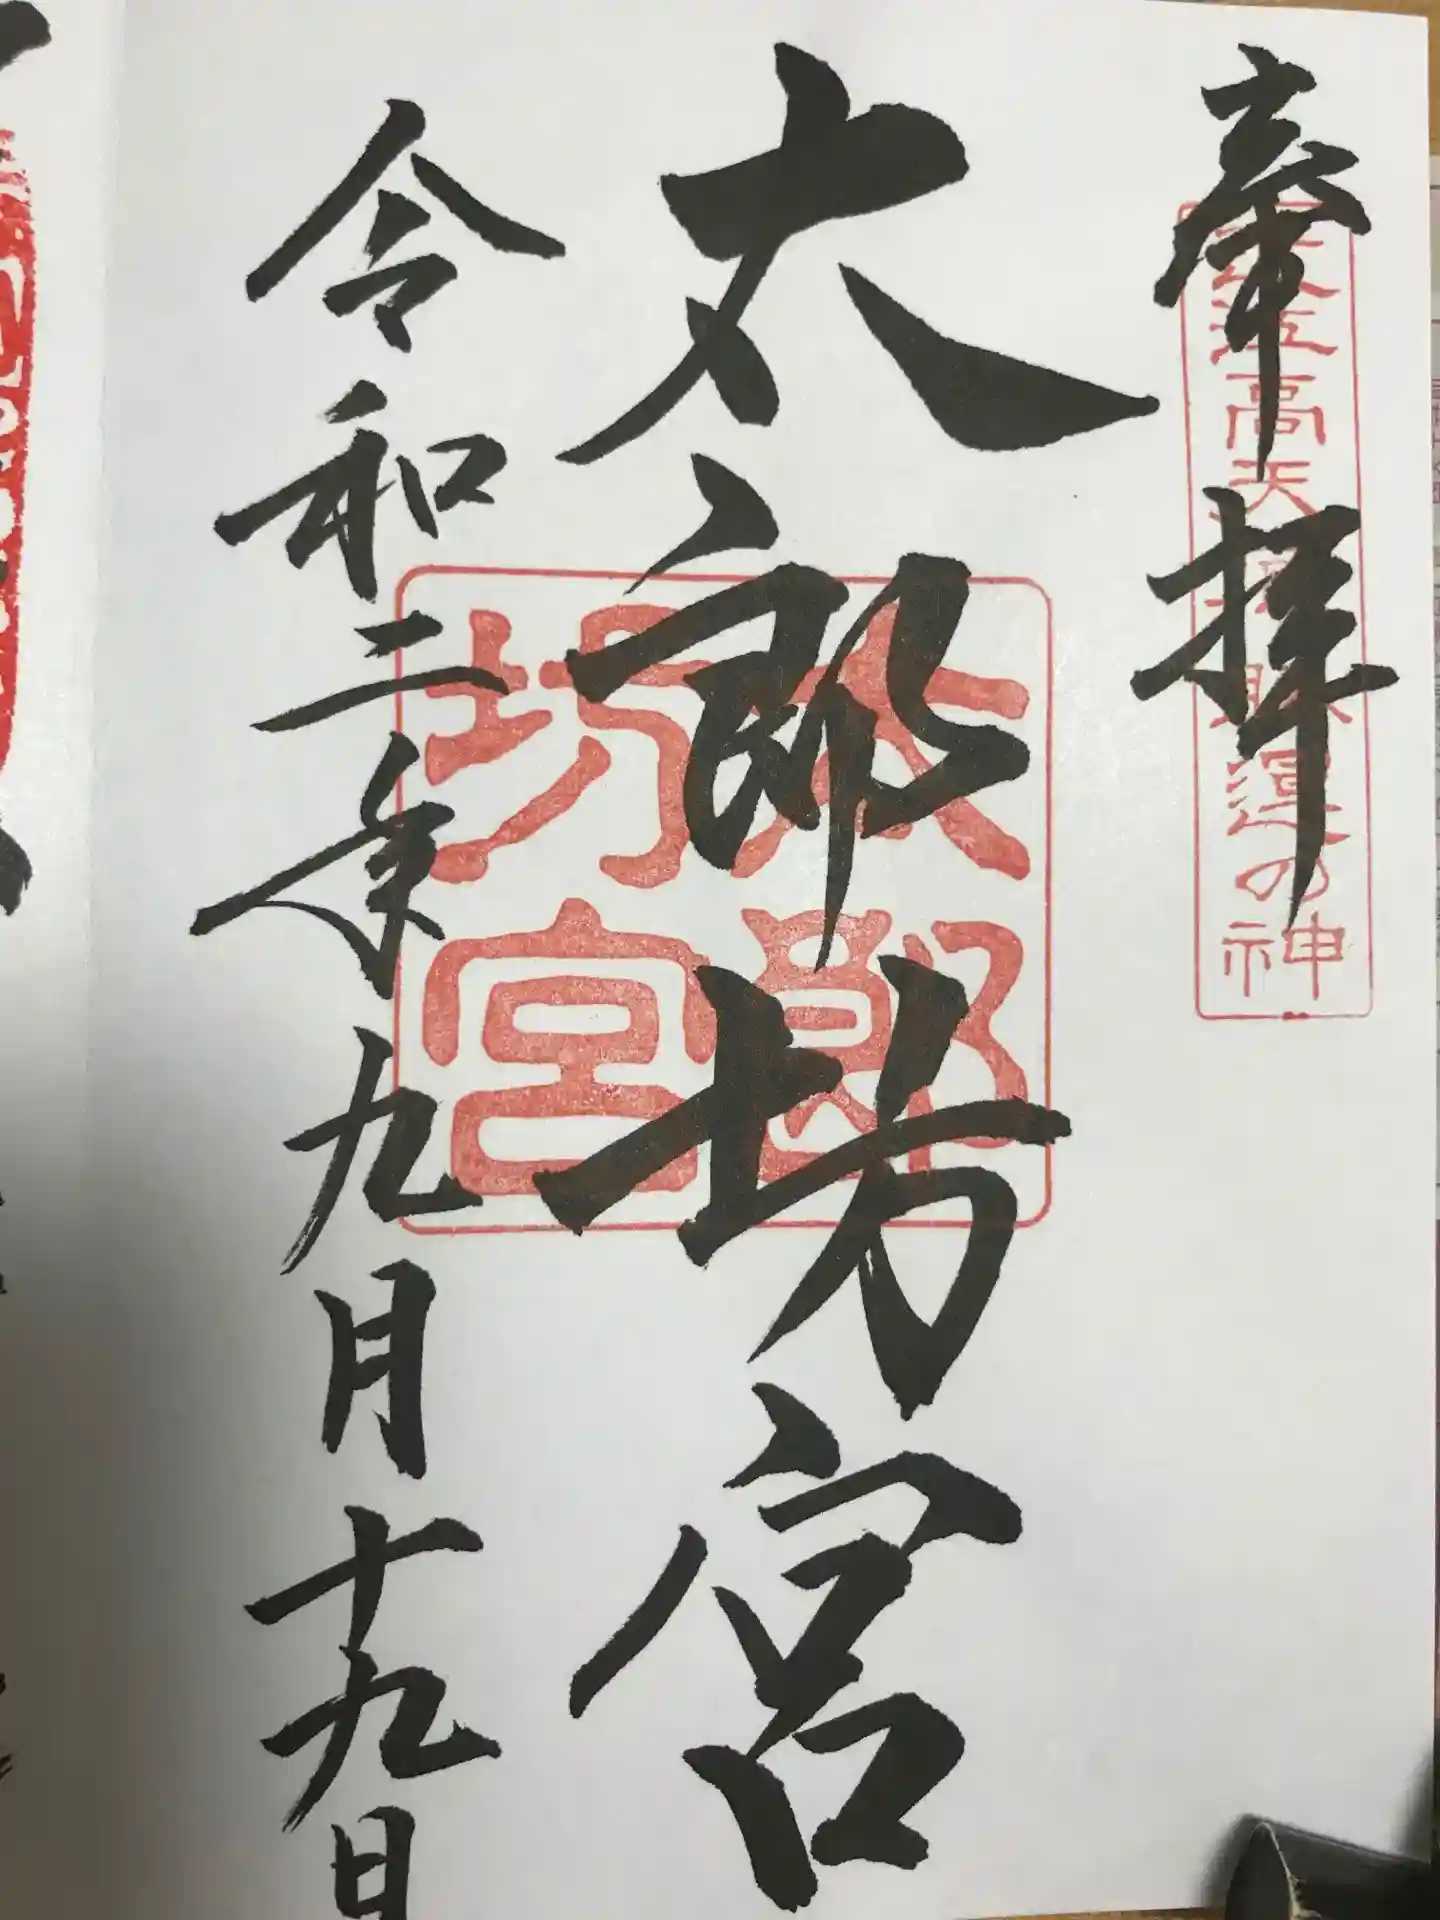 奉拝
近江高天 勝運の神
太郎坊宮
太郎
坊宮
令和二年九月十九日